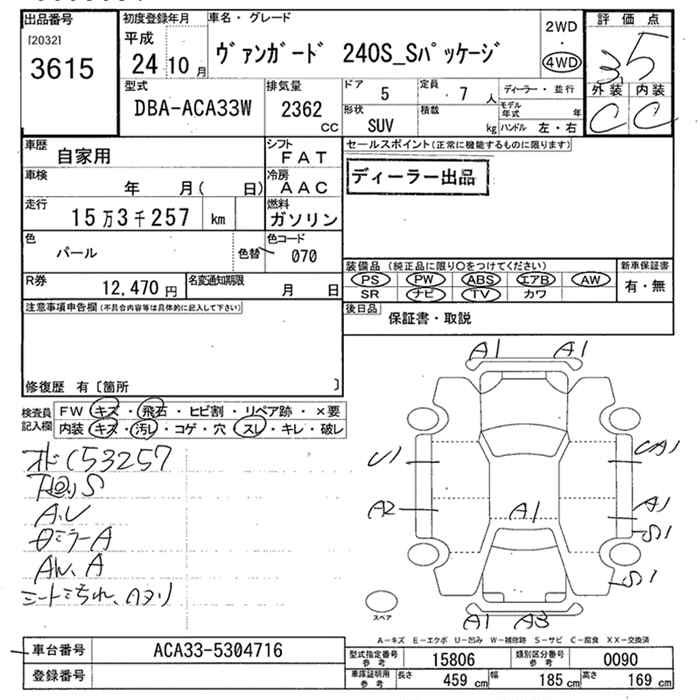 出品番号 初度登録年月 車名・グレード 2WD・4WD 評価点
[2032] 3615 平成 24 10月 ヴァンガード 240S_Sパッケージ 3.5
外装 内装
C C
型式 排気量 ドア 定員 ディーラー・並行
DBA-ACA33W 2362 cc 5 7 人 モデル年式 年
形状 積載
SUV kg ハンドル 左・右
車歴 シフト セールスポイント(正常に機能するものに限ります)
自家用 FAT
車検 冷房 ディーラー出品
年 月( 日) AAC
走行 燃料
15万3千257 km ガソリン
色 色替 色コード
パール 070
装備品 (純正品に限り○をつけてください) 新車保証書
PS PW ABS エアB AW 有・無
SR ナビ TV カワ
R券 名変通知期限
12,470円 月 日
注意事項申告欄(不具合内容等は具体的に記入して下さい) 後日品
保証書・取説
修復歴 有 [箇所 ]
検査員記入欄 FW キズ・飛石・ヒビ割・リペア跡・×要
内装 キズ・汚レ・コゲ・穴・スレ・キレ・破レ
53257
下回りS
A,U
ミラーA
A
シート汚れ、
A1 A1
U1 UA1
A2 A1 A1
S1
S1
スペア
A1 A3
A-キズ E-エクボ U-凹み W-補修跡 S-サビ C-腐食 XX-交換済
車台番号 ACA33-5304716
登録番号
型式指定番号 参考 15806 類別区分番号 参考 0090
車庫証明用 参考 長さ 459 cm 幅 185 cm 高さ 169 cm